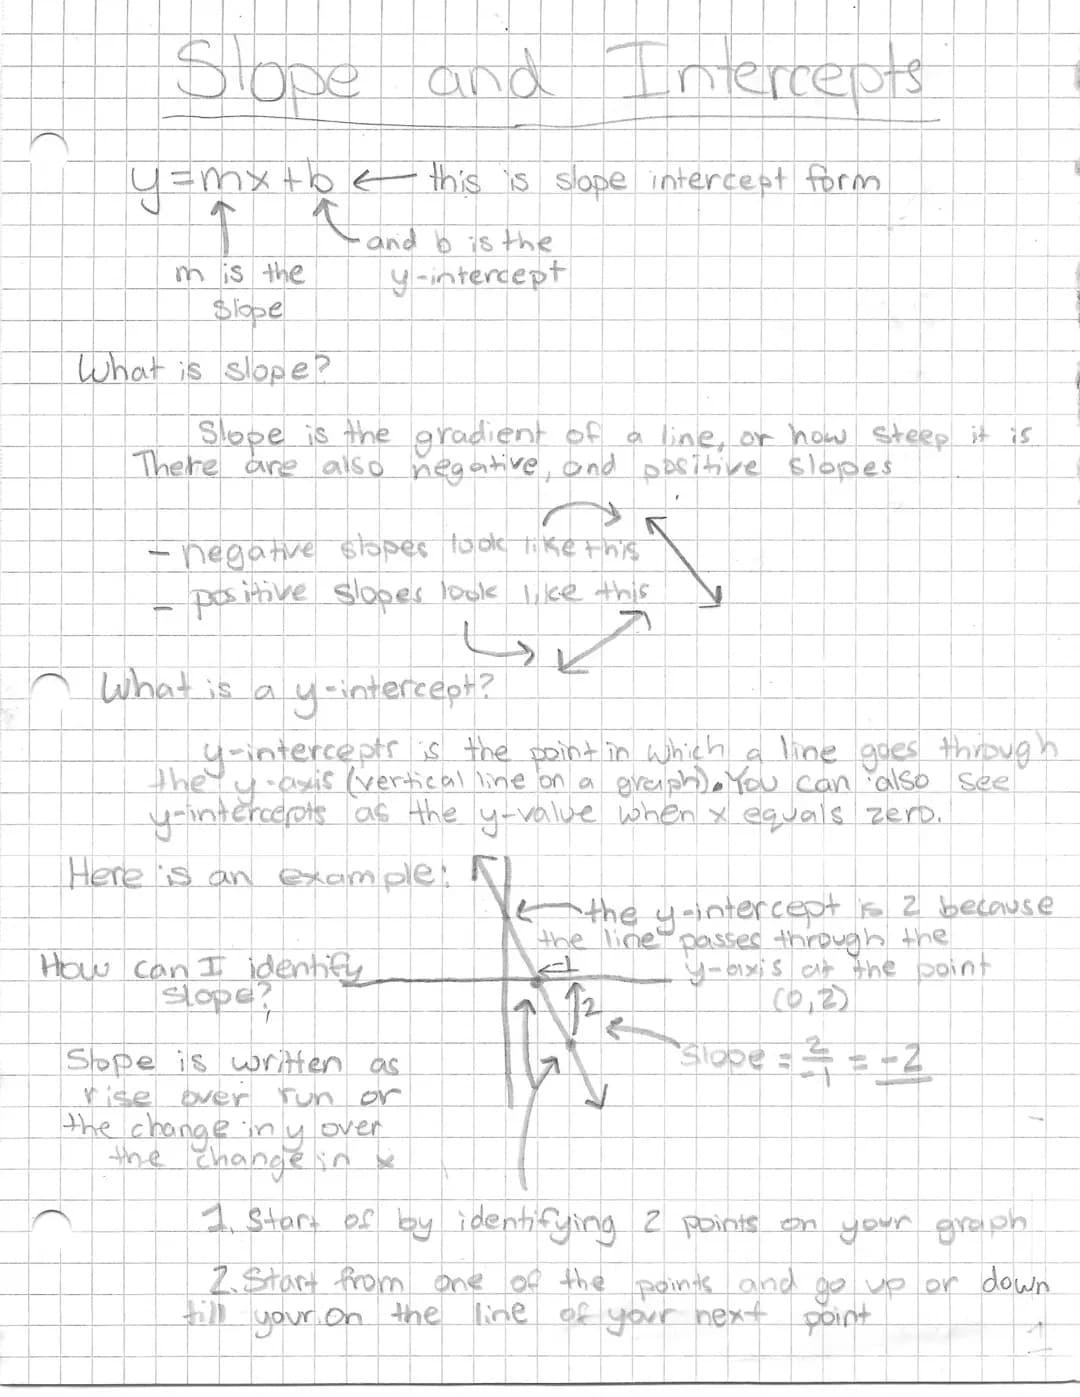 Slope and Intercepts
y=mx+b ← this is slope intercept form
and b is the
y-intercept
m is the
slope
What is slope?
Slope is the gradient of a line, or how steep it is
There are also negative, and positive slopes
- negative slopes look like this
- positive slopes look like this
What is a y-intercept?
y-intercepts is the point in which a line goes through
the y-axis (vertical line on a graph). You can also see
y-intercepts as the y-value when x equals zero.
Here is an example:
the y-intercept is 2 because
the line passes through the
y-axis at the point
(0,2)
How can I identify
slope?
-1
2
Slope = 2/-1 = -2
Slope is written as
rise over run or
the change in y over
the change in x
1. Start of by identifying 2 points on your graph
2. Start from one of the points and go up or down
till your on the line of your next point